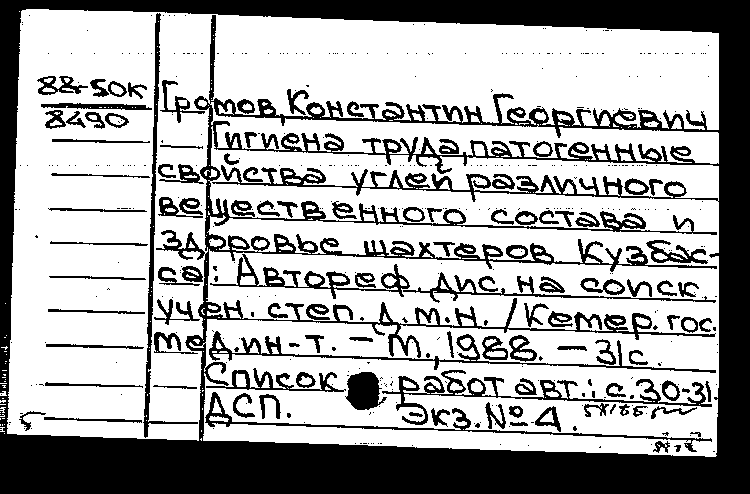 88-50К
8490
Громов, Константин Георгиевич
Гигиена труда, патогенные
свойства углей различного
вещественного состава и
здоровье шахтеров Кузбас-
са: Автореф. дис. на соиск.
учен. степ. д.м.н. /Кемер. гос.
мед. ин-т. — М., 1988. — 31с.
Список работ авт.: с. 30-31.
ДСП. Экз. № 4.